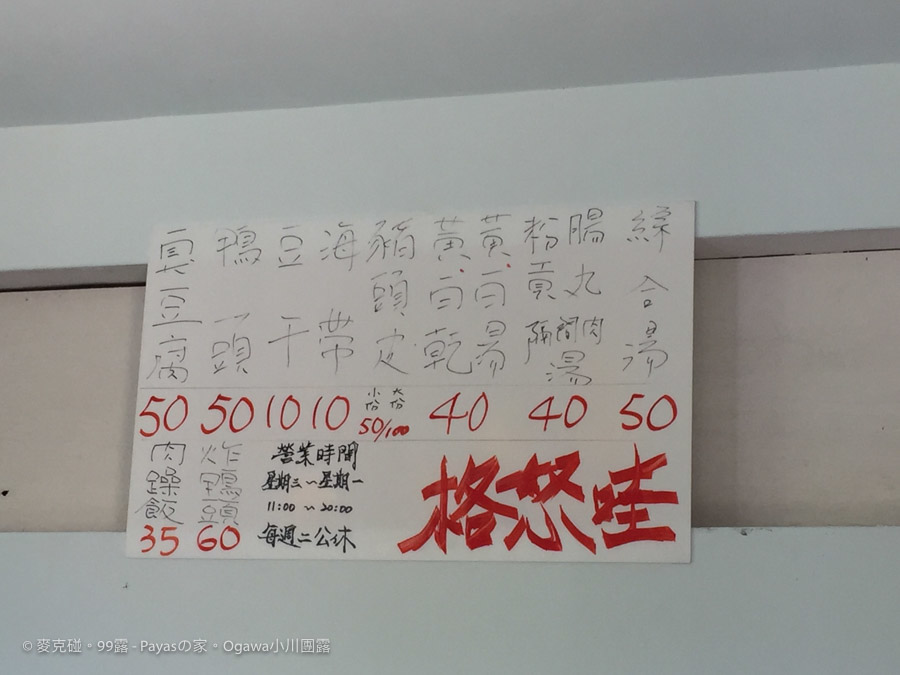 臭豆腐
50
鴨一頭
50
豆干
10
海帶
10
豬頭皮
小份 大份
50/100
黃白乾
黃白湯
40
粉腸
貢丸
隔間肉
湯
40
綜合湯
50
肉躁飯
35
炸鴨頭
60
營業時間
星期三~星期一
11:00 ~ 20:00
每週二公休
格怒哇
© 麥克碰。99露 - Payasの家。Ogawa小川團露